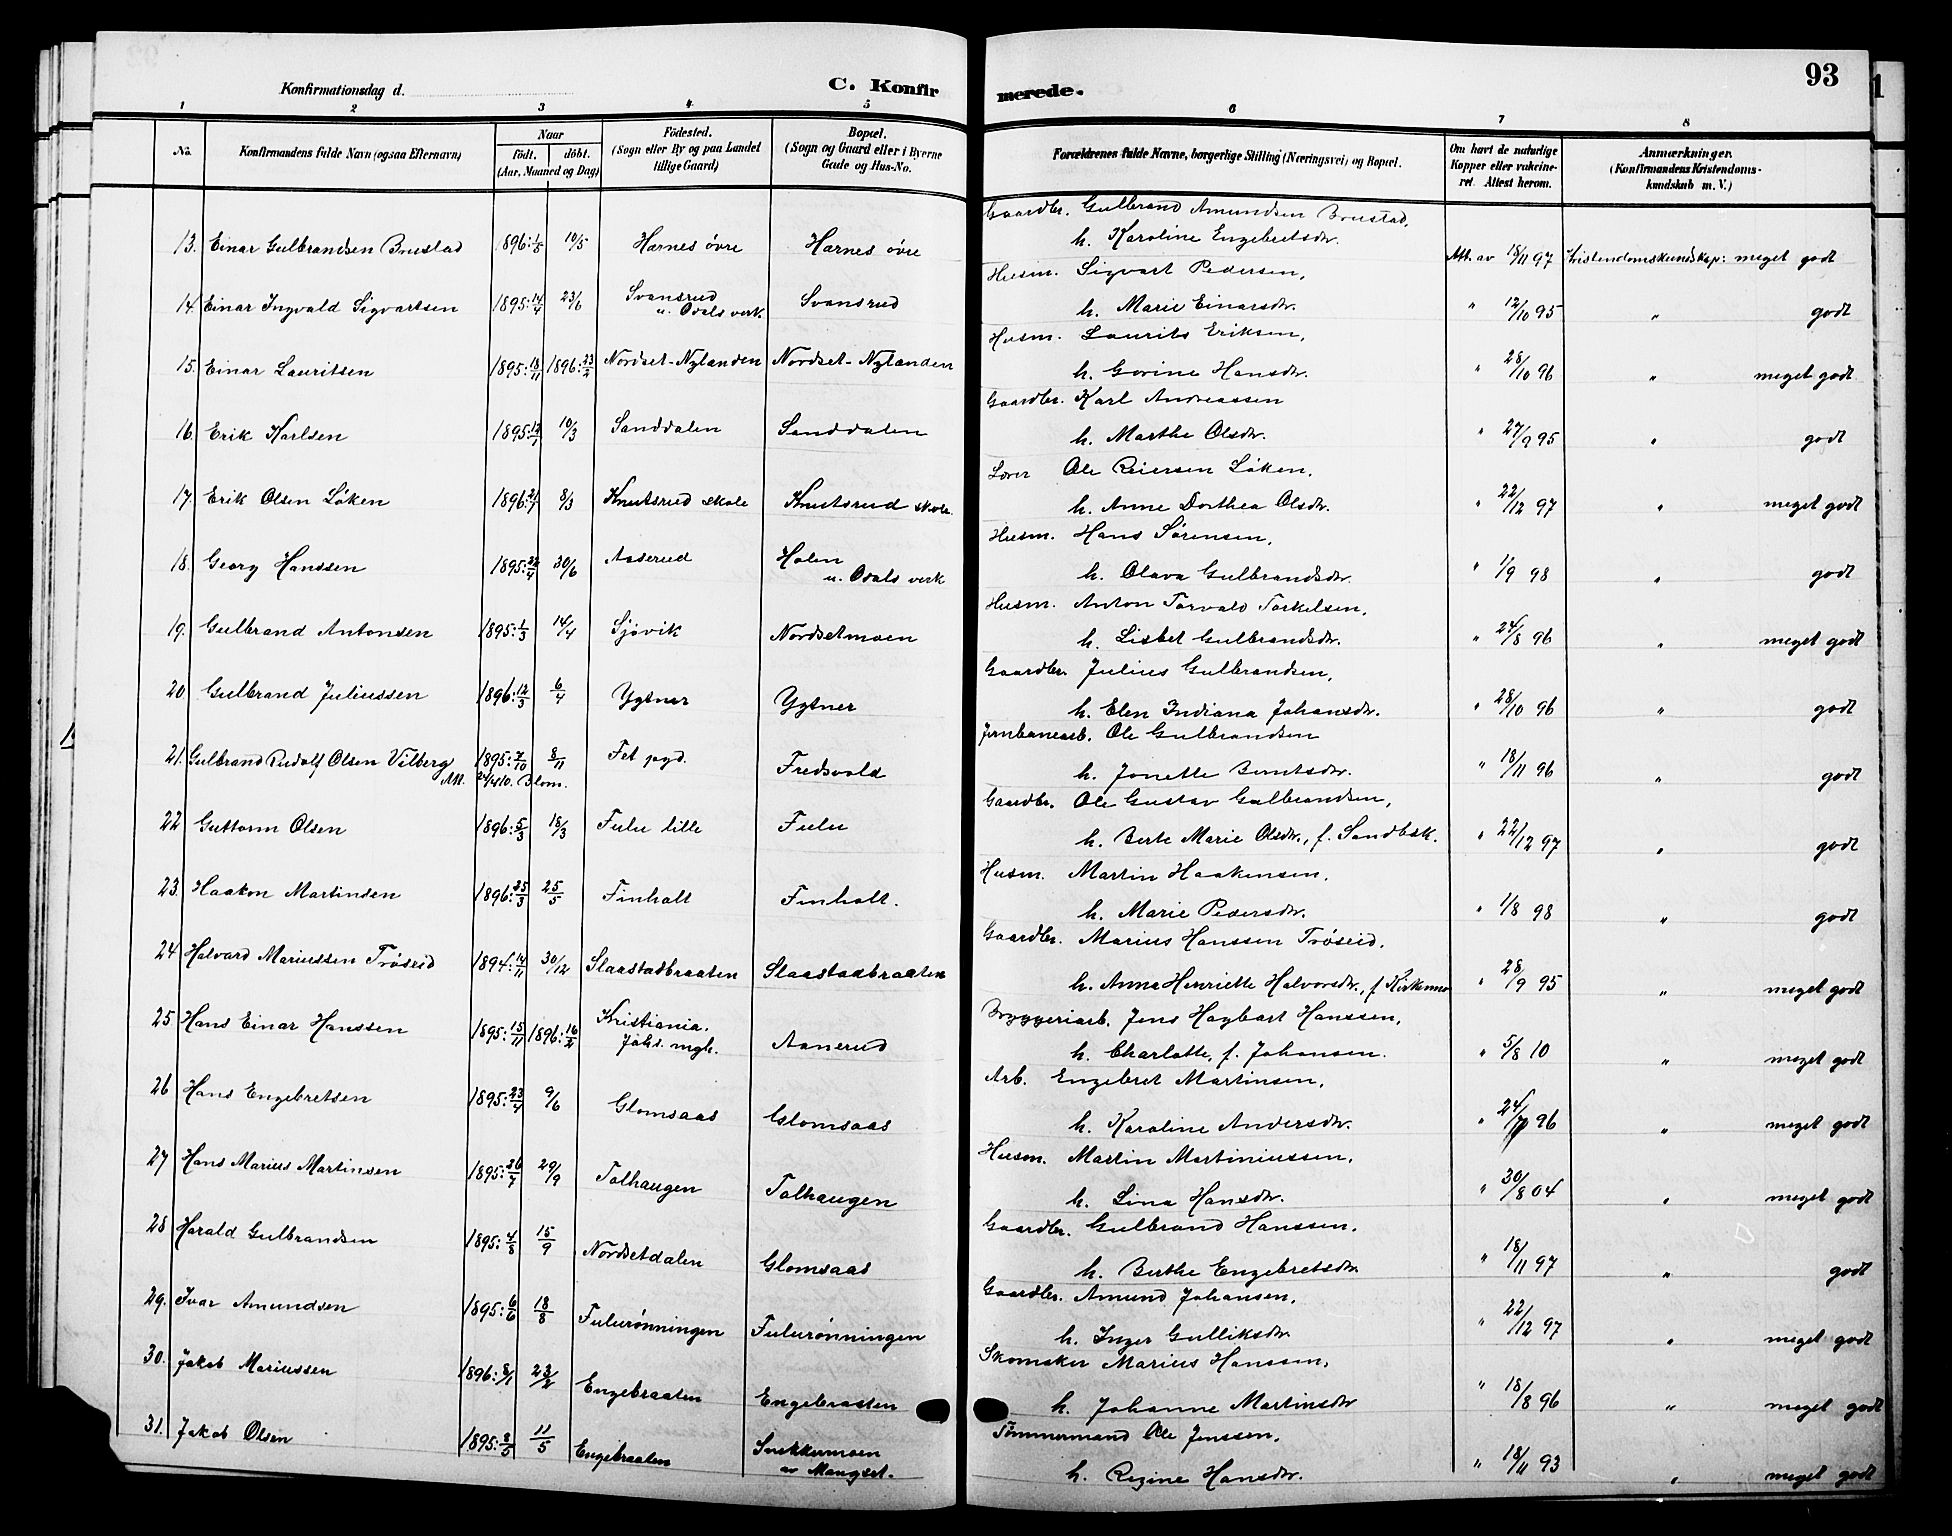 93
Konfirmationsdag d.
C. Konfir
merede.
1 2 3 4 5 6 7 8
No. Konfirmandens fulde Navn (ogsaa Efternavn) Naar födt. döbt. (Aar, Maaned og Dag) Födested. (Sogn eller By og paa Landet tillige Gaard) Bopæl. (Sogn og Gaard eller i Byerne Gade og Hus-No. Forældrenes fulde Navne, borgerlige Stilling (Næringsvei) og Bopæl. Om havt de naturlige Kopper eller vakcineret. Attest herom. Anmærkninger. (Konfirmandens Kristendomskundskab m. V.)
Gaardbr. Gulbrand Amundsen Brustad,
13. Einar Gulbrandsen Brustad 1896: 1/5 10/5 Harnes övre Harnes övre h. Karoline Engebretsdr. Att. av 18/11 97 Kristendomskundskap: meget godt
Husm. Sigvart Pedersen,
14. Einar Ingvald Sigvartsen 1895: 14/4 23/6 Svansrud u. Odals verk Svansrud h. Marie Einarsdr. " 12/10 95 " godt
Husm. Laurits Eriksen,
15. Einar Lauritsen 1895: 18/11 1896: 23/2 Nordset-Nylanden Nordset-Nylanden h. Gorine Hansdr. " 28/10 96 " meget godt
Gaardbr. Karl Andreassen
16. Erik Karlsen 1895: 10/3 Sanddalen Sanddalen h. Marthe Olsdr. " 27/9 95 " godt
Lærer Ole Reiersen Löken,
17. Erik Olsen Löken 1896: 8/3 Knutsrud skole Knutsrud skole h. Anne Dorthea Olsdr. " 22/12 97 " meget godt
Husm. Hans Sörensen,
18. Georg Hanssen 1895: 30/6 Aaserud Holen u. Odals verk h. Olava Gulbrandsdr. " 1/9 98 " godt
Husm. Anton Torvald Torkelsen,
19. Gulbrand Antonsen 1895: 1/3 14/4 Sjövik Nordsetmoen h. Lisbet Gulbrandsdr. " 24/8 96 " meget godt
Gaardbr. Julius Gulbrandsen,
20 Gulbrand Juliussen 1896: 12/3 6/4 Ygtner Ygtner h. Elen Indiana Johansdr. " 28/10 96 " godt
Jernbanearb. Ole Gulbrandsen
21. Gulbrand Rudolf Olsen Vilberg 1895: 7/10 8/11 Fet pgd. Fredsvold h. Jonette Berntsdr. " 18/11 96 " godt
Att. Blom.
Gaardbr. Ole Gustav Gulbrandsen,
22 Guttorm Olsen 1896: 5/3 18/3 Fulu lille Fulu h. Berte Marie Olsdr., f. Sandbæk. " 22/12 97 " godt
Husm. Martin Haakensen,
23. Haakon Martinsen 1896: 25/3 25/5 Finholt Finholt. h. Marie Pedersdr. " 1/8 98 " godt
Gaardbr. Marius Hanssen Tröseid,
24 Halvard Mariussen Tröseid 1894: 14/11 30/12 Slaastadbraaten Slaastadbraaten h. Anna Henriette Halvorsdr., f. Kirkemo " 28/9 95 " meget godt
Bryggeriarb. Jens Hagbart Hanssen,
25 Hans Einar Hanssen 1895: 15/11 1896: 16/2 Kristiania. Johs. mgh. Aanerud h. Charlotte, f. Johansen. " 5/8 10 " meget godt
Arb. Engebret Martinsen,
26 Hans Engebretsen 1895: 23/4 9/6 Glomsaas Glomsaas h. Karoline Andersdr. " 96 " meget godt
Husm. Martin Martiniussen,
27 Hans Marius Martinsen 1895: 26/7 29/9 Tolhaugen Tolhaugen h. Lina Hansdr. " 30/8 04 " meget godt
Gaardbr. Gulbrand Hanssen,
28 Harald Gulbrandsen 1895: 4/8 15/9 Nordsetdalen Glomsaas h. Berthe Engebretsdr. " 18/11 97 " godt
Gaardbr. Amund Johansen,
29. Ivar Amundsen 1895: 6/6 18/8 Fulurönningen Fulurönningen h. Inger Gulliksdr. " 22/12 97 " meget godt
Skomaker Marius Hanssen,
30. Jakob Mariussen 1896: 8/1 23/2 Engebraaten Engebraaten h. Johanne Martinsdr " 18/8 96 " meget godt
Tömmermand Ole Jenssen,
31. Jakob Olsen 1895: 8/5 11/5 Engebraaten Snekkermoen av Mangset. h. Regine Hansdr. " 18/11 93 " meget godt